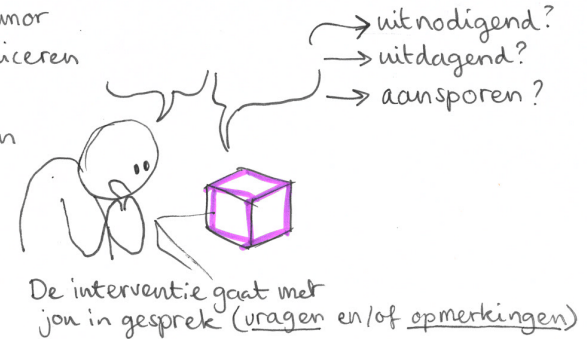 uitnodigend?
iceren
uitdagend?
aansporen?
De interventie gaat met
jou in gesprek (vragen en/of opmerkingen)